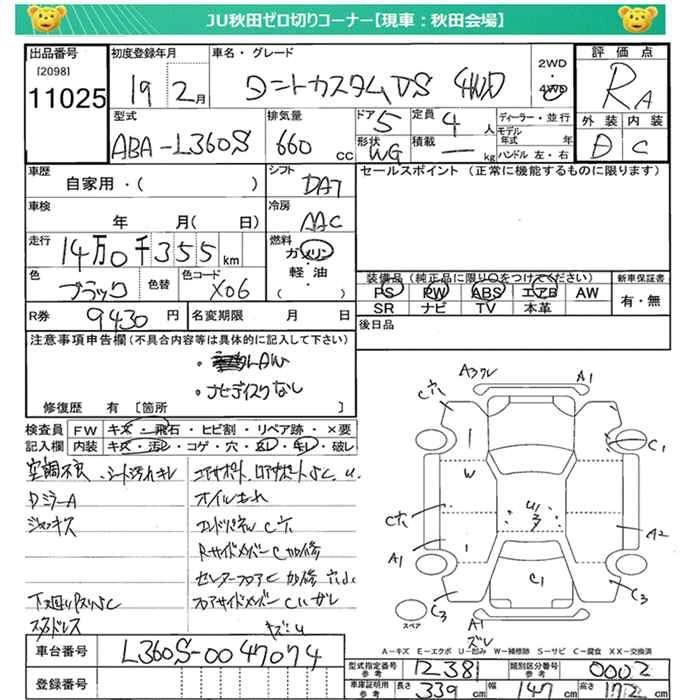 JU秋田ゼロ切りコーナー【現車：秋田会場】
出品番号
[2098]
11025
初度登録年月
19 2月
車名・グレード
タントカスタムVS 4WD
2WD
4WD
評価点
RA
外装 内装
D C
型式
ABA-L360S
排気量
660 cc
ドア
5
形状
WG
定員
4人
積載
— kg
ディーラー・並行
モデル年式 年
ハンドル 左・右
車歴
自家用・( )
シフト
DAT
セールスポイント (正常に機能するものに限ります)
車検
年 月( 日)
冷房
AAC
走行
14万0千355km
燃料
ガソリン
軽油
( )
色
ブラック
色替
色コード
X06
装備品(純正品に限り○をつけてください)
PS PW ABS エアB AW
SR ナビ TV 本革
新車保証書
有・無
R券 9430円
名変期限 月 日
後日品
注意事項申告欄(不具合内容等は具体的に記入して下さい)
・ナビディスクなし
修復歴 有 [箇所 ]
検査員
記入欄
FW キズ・飛石・ヒビ割・リペア跡・×要
内装 キズ・汚レ・コゲ・穴・スレ・キレ・破レ
空調不良
DミラーA
ジャッキ欠
オイルもれ
エンドパネルC穴
RサイドメンバーC 加修
センターフロアC 加修 穴
A3ワレ
A1
C穴
C1
W
C穴
A2
A1
C1
C3
C3
A1
ズレ
スペア
A-キズ E-エクボ U-凹み W-補修跡 S-サビ C-腐食 XX-交換済
車台番号
L360S-0047074
登録番号
型式指定番号
参考
12381
類別区分番号
参考
0002
車庫証明用
参考
長さ 339cm
幅 147cm
高さ 172cm